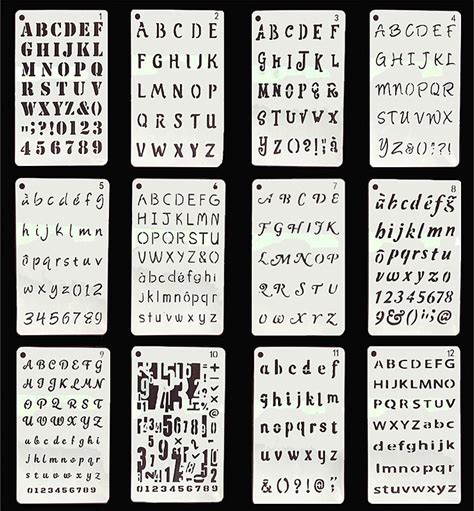 1
ABCDEF
GHIJKL
MNOPQR
RSTUV
WXYZ&O
";?!0123
456789
2
ABCDE
FGHIJK
LMNOP
QRSTU
VWXYZ
3
ABCDEF
GHIJKL
MNOPQR
STUVWX
YZO?!;à
4
ABCDEF
GHIJKL
MNOPQR
STUVWX
YZ&?!()
5
àbcdéfg
hijklmn
ôpqrstuv
wxyz012
3456789
6
ABCDEFG
HIJKLMN
OPQRSTU
VWXYZ&O
àbcdéfghi
jklmnôpqr
stuvwxyz
7
ABCDE
FGHIJK
LMNOP
QRSTU
VWXYZ
8
àbcdéfg
hijklmn
ôpqrstu
vwxyzö
12345678
9&()";@
9
ABCDEFG
HIJKLMN
OPQRSTU
UVWXYZ
abcdefghi
jklmnopqr
stuvwxyz
0123456789
10
0123456789
11
abcdef
ghijklm
nopqrst
uvwxyz
&()?!;@
12
ABCDEFG
HIJKLMNO
PQRSTUV
WXYZabc
defghijk
lmnopqr
stuvwxyz